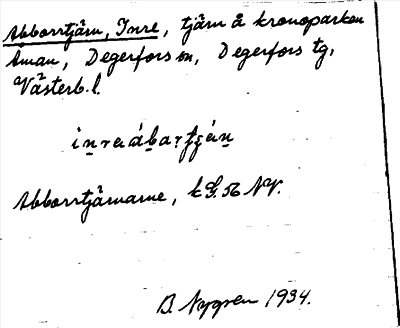 Abborrtjärn, Inre, tjärn å kronoparken
Åman, Degerfors sn, Degerfors tg,
Västerb. l.
Abborrtjärnarne, k 56 NV.
B. Nygren 1934.